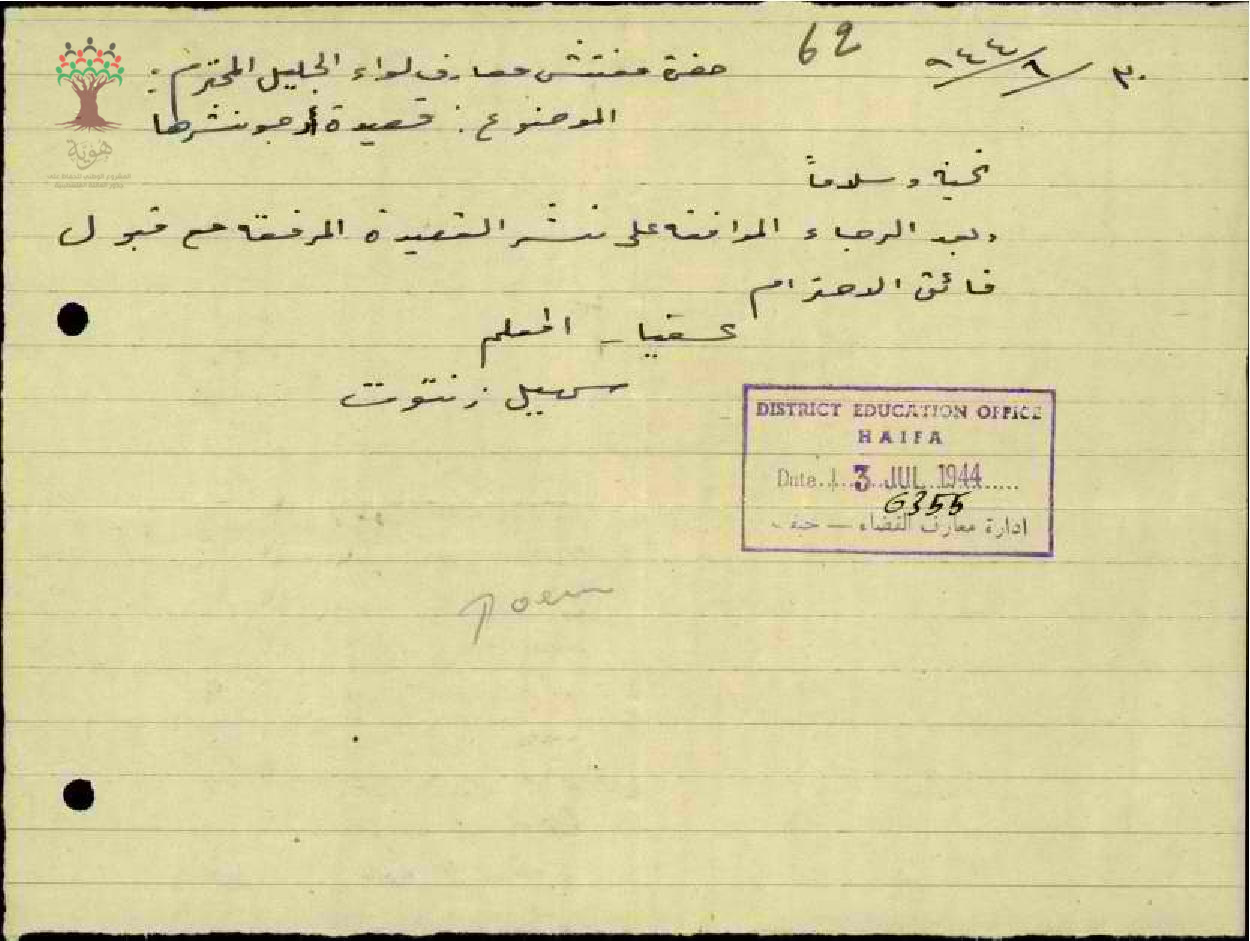 62
٣٠/٦/٩٤٤
حضرة مفتش معارف لواء الجليل المحترم :
الموضوع : قصيدة أرجو نشرها
تحية وسلاماً
وبعد الرجاء الموافقة على نشر القصيدة المرفقة مع قبول
فائق الاحترام
المعلم
سهيل زنتوت
DISTRICT EDUCATION OFFICE
HAIFA
Date 3 JUL 1944
6355
ادارة معارف القضاء — حيفا
Poem
هوية